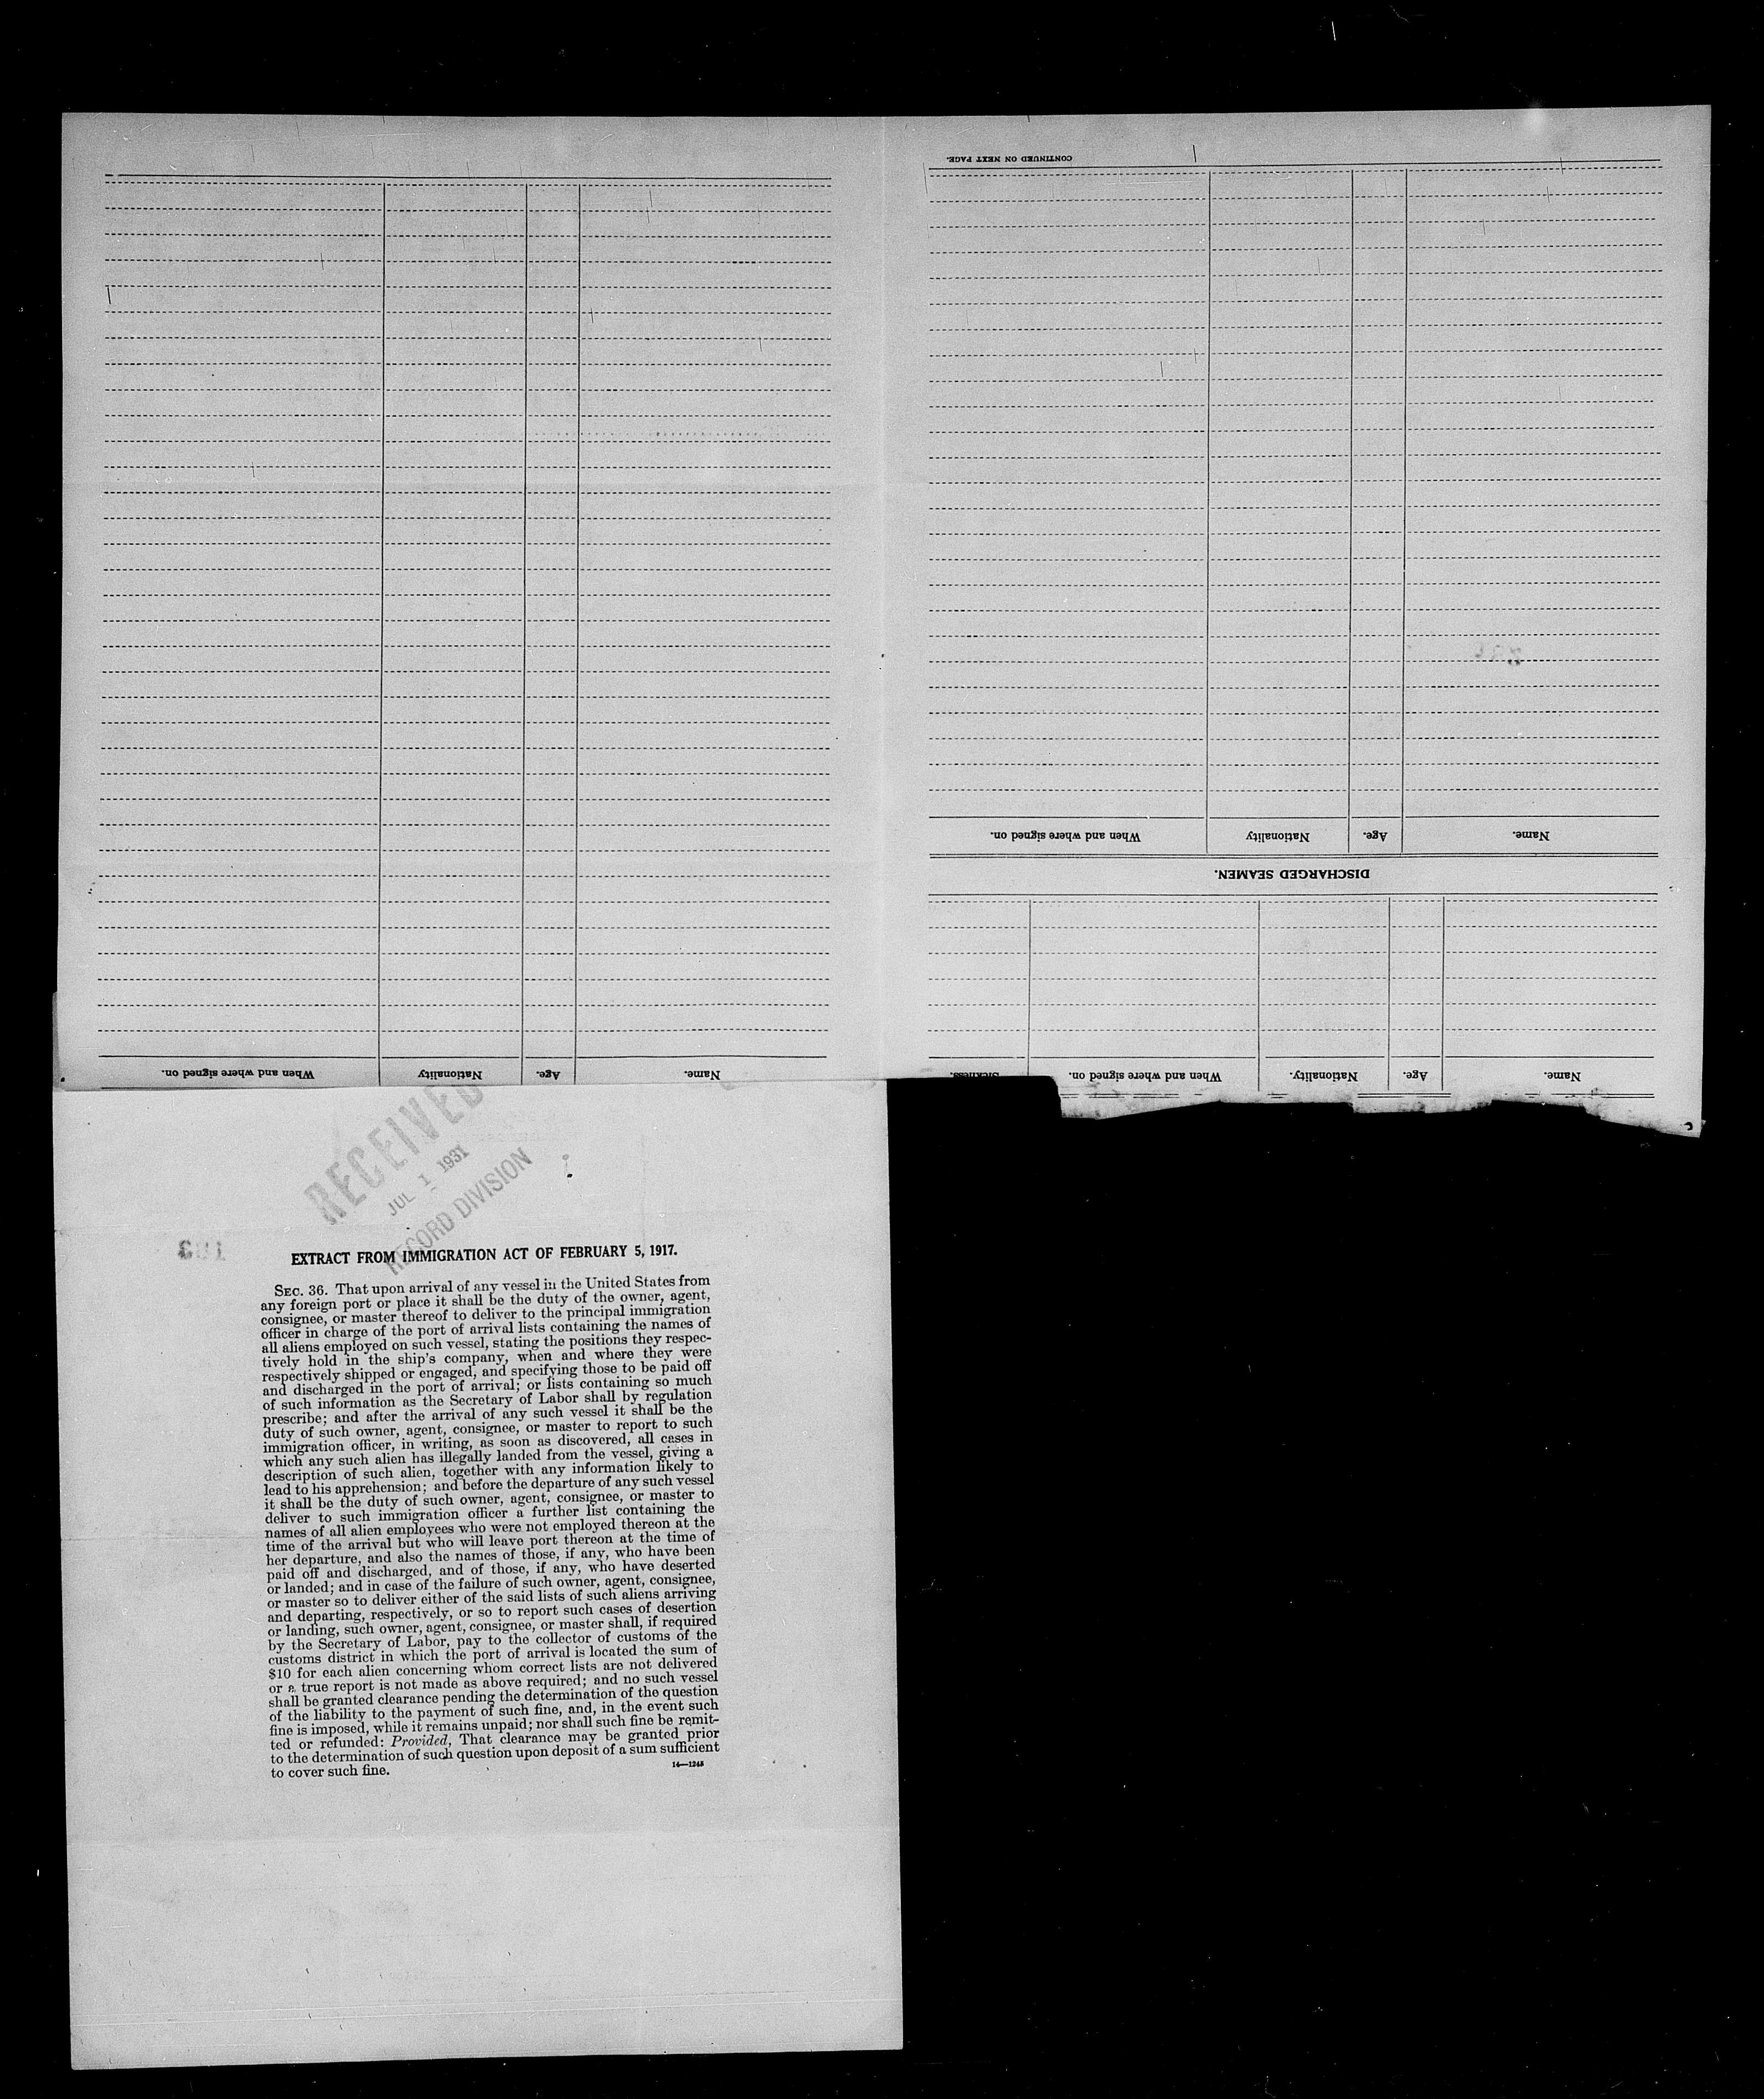 CONTINUED ON NEXT PAGE.
When and where signed on. Nationality Age. Name.
DISCHARGED SEAMEN.
Name. Age. Nationality. When and where signed on. Sickness.
Name. Age. Nationality When and where signed on.
RECEIVED
JUL 1 1931
RECORD DIVISION
EXTRACT FROM IMMIGRATION ACT OF FEBRUARY 5, 1917.
SEC. 36. That upon arrival of any vessel in the United States from
any foreign port or place it shall be the duty of the owner, agent,
consignee, or master thereof to deliver to the principal immigration
officer in charge of the port of arrival lists containing the names of
all aliens employed on such vessel, stating the positions they respec-
tively hold in the ship's company, when and where they were
respectively shipped or engaged, and specifying those to be paid off
and discharged in the port of arrival; or lists containing so much
of such information as the Secretary of Labor shall by regulation
prescribe; and after the arrival of any such vessel it shall be the
duty of such owner, agent, consignee, or master to report to such
immigration officer, in writing, as soon as discovered, all cases in
which any such alien has illegally landed from the vessel, giving a
description of such alien, together with any information likely to
lead to his apprehension; and before the departure of any such vessel
it shall be the duty of such owner, agent, consignee, or master to
deliver to such immigration officer a further list containing the
names of all alien employees who were not employed thereon at the
time of the arrival but who will leave port thereon at the time of
her departure, and also the names of those, if any, who have been
paid off and discharged, and of those, if any, who have deserted
or landed; and in case of the failure of such owner, agent, consignee,
or master so to deliver either of the said lists of such aliens arriving
and departing, respectively, or so to report such cases of desertion
or landing, such owner, agent, consignee, or master shall, if required
by the Secretary of Labor, pay to the collector of customs of the
customs district in which the port of arrival is located the sum of
$10 for each alien concerning whom correct lists are not delivered
or a true report is not made as above required; and no such vessel
shall be granted clearance pending the determination of the question
of the liability to the payment of such fine, and, in the event such
fine is imposed, while it remains unpaid; nor shall such fine be remit-
ted or refunded: Provided, That clearance may be granted prior
to the determination of such question upon deposit of a sum sufficient
to cover such fine.
14—1245